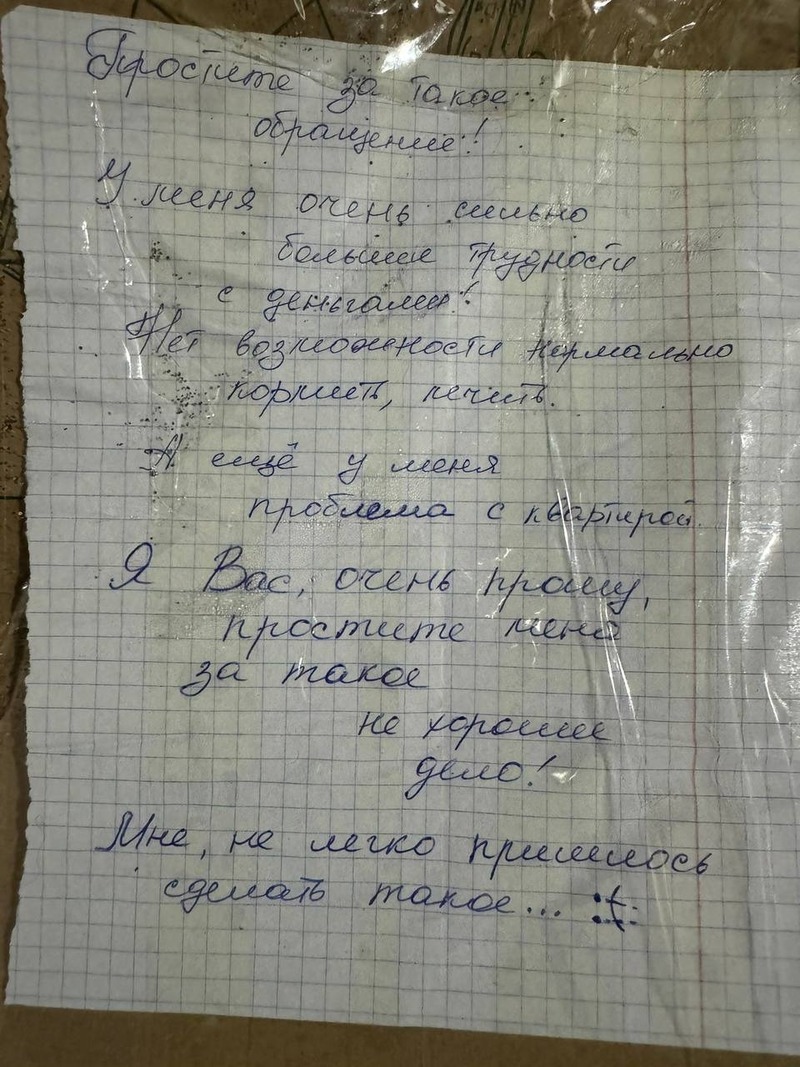 Простите за такое
обращение!
У меня очень сильно
большие трудности
с деньгами!
Нет возможности нормально
кормить, лечить.
А ещё у меня
проблема с квартирой.
Я Вас, очень прошу,
простите меня
за такое
не хорошее
дело!
Мне, не легко пришлось
сделать такое...